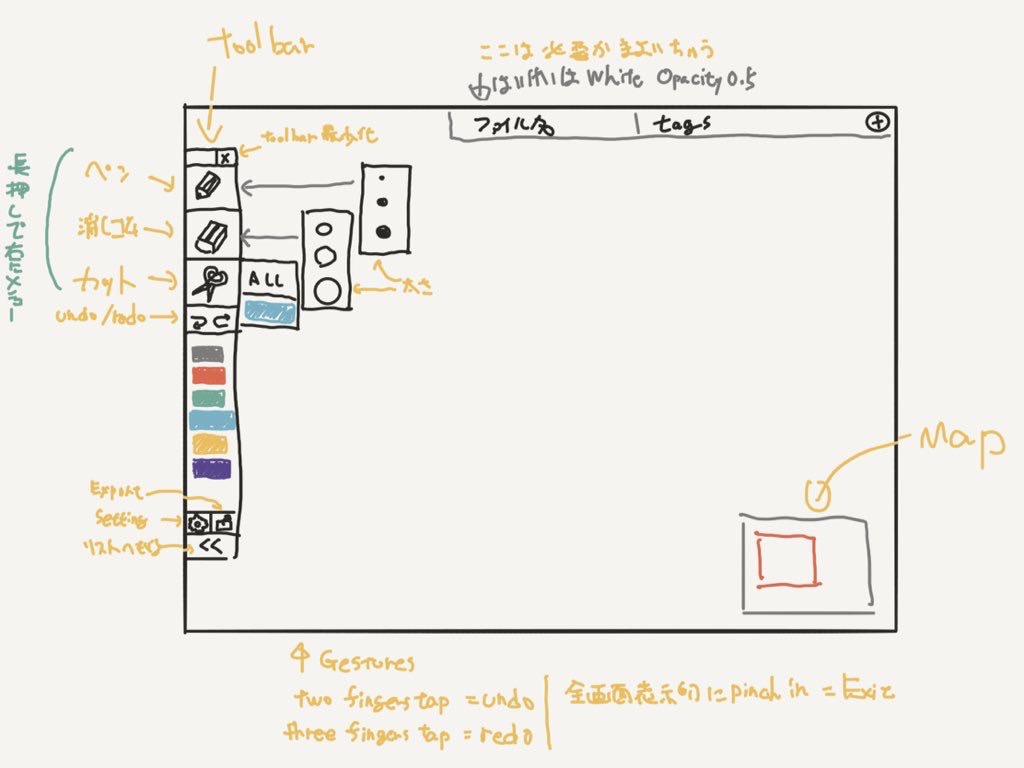 toolbar
ここは必要か まよいちゅう
White Opacity 0.5
ファイル名 tags
toolbar 最小化
x
長押しで右にメニュー
ペン
消しゴム
カット
ALL
太さ
undo/redo
Map
Export
Setting
リストへもどる
<<
Gestures
two fingers tap = undo
three fingers tap = redo
全画面表示 にpinch in = Exit